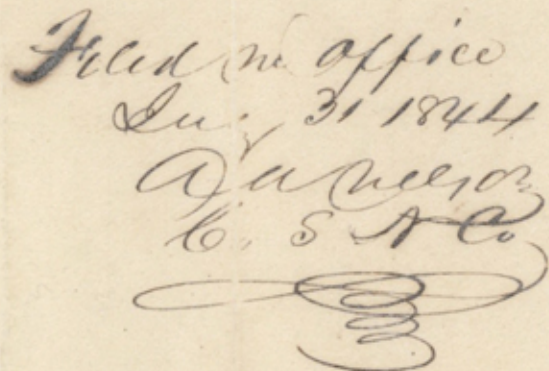 Filed in office
31 1844
A Nelson
C. S N Co